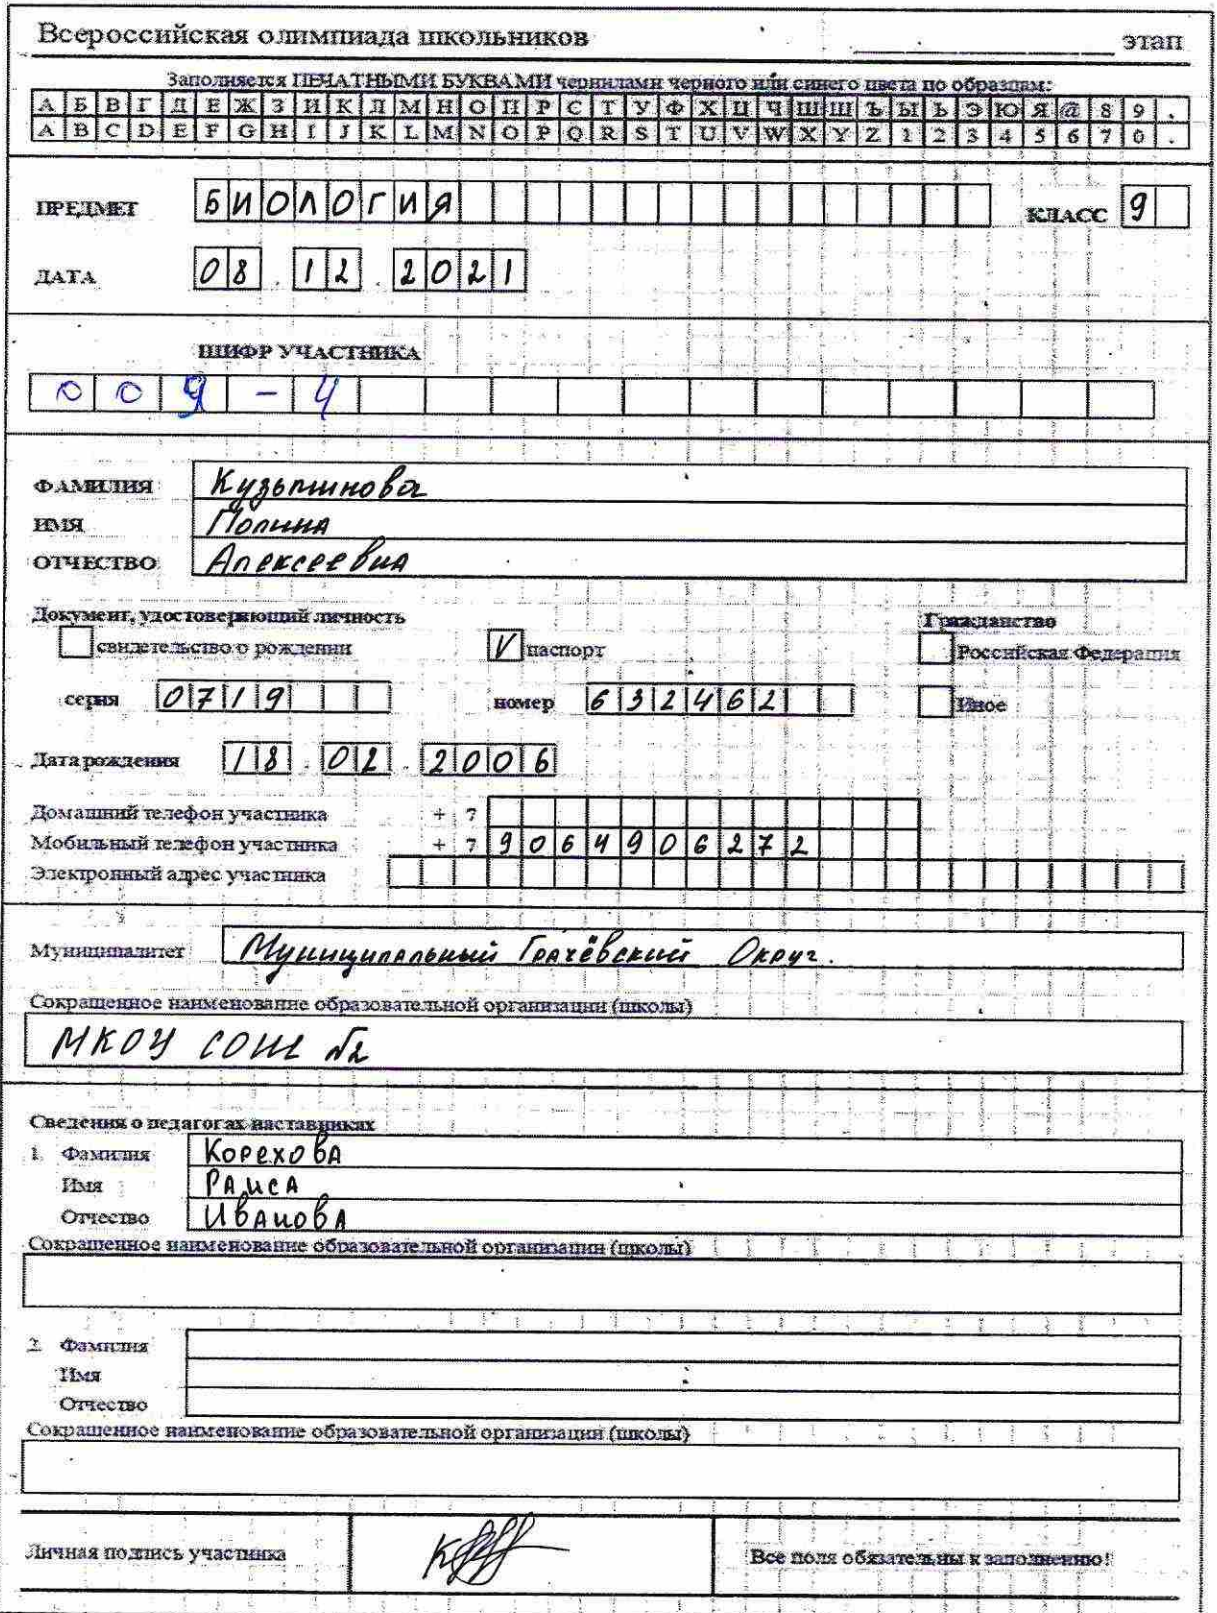 Всероссийская олимпиада школьников ____________ этап
Заполняется ПЕЧАТНЫМИ БУКВАМИ чернилами черного или синего цвета по образцам:
А Б В Г Д Е Ж З И К Л М Н О П Р С Т У Ф Х Ц Ч Ш Щ Ъ Ы Ь Э Ю Я @ 8 9 ,
A B C D E F G H I J K L M N O P Q R S T U V W X Y Z 1 2 3 4 5 6 7 0 .
ПРЕДМЕТ БИОЛОГИЯ КЛАСС 9
ДАТА 08.12.2021
ШИФР УЧАСТНИКА
009-4
ФАМИЛИЯ Кузьминова
ИМЯ Полина
ОТЧЕСТВО Алексеевна
Документ, удостоверяющий личность Гражданство
свидетельство о рождении V паспорт Российская Федерация
серия 0719 номер 632462 Иное
Дата рождения 18.02.2006
Домашний телефон участника + 7
Мобильный телефон участника + 7 9064906272
Электронный адрес участника
Муниципалитет Муниципальный Грачёвский Округ.
Сокращенное наименование образовательной организации (школы)
МКОУ СОШ №2
Сведения о педагогах наставниках
1. Фамилия Корехова
Имя Раиса
Отчество Иванова
Сокращенное наименование образовательной организации (школы)
2. Фамилия
Имя
Отчество
Сокращенное наименование образовательной организации (школы)
Личная подпись участника Все поля обязательны к заполнению!